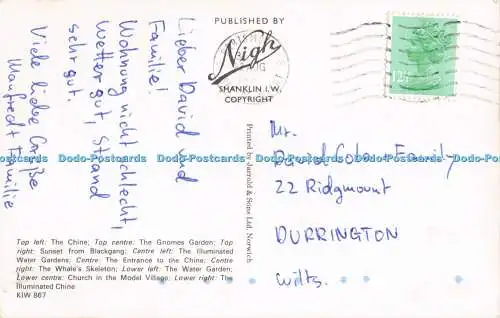 Lieber David und
Familie!
Wohnung nicht schlecht,
Wetter gut, Strand
sehr gut.
Viele liebe Grüße
Manfred + Familie
PUBLISHED BY
Nigh
SHANKLIN I.W.
COPYRIGHT
12½P
Printed by Jarrold & Sons Ltd, Norwich
Mr.
David Family
22 Ridgmount
DURRINGTON
Wilts.
Top left: The Chine; Top centre: The Gnomes Garden; Top
right: Sunset from Blackgang; Centre left: The Illuminated
Water Gardens; Centre: The Entrance to the Chine; Centre
right: The Whale's Skeleton; Lower left: The Water Garden;
Lower centre: Church in the Model Village; Lower right: The
Illuminated Chine
KIW 867
Dodo-Postcards Dodo-Postcards Dodo-Postcards Dodo-Postcards Dodo-Postcards Dodo-Postcards